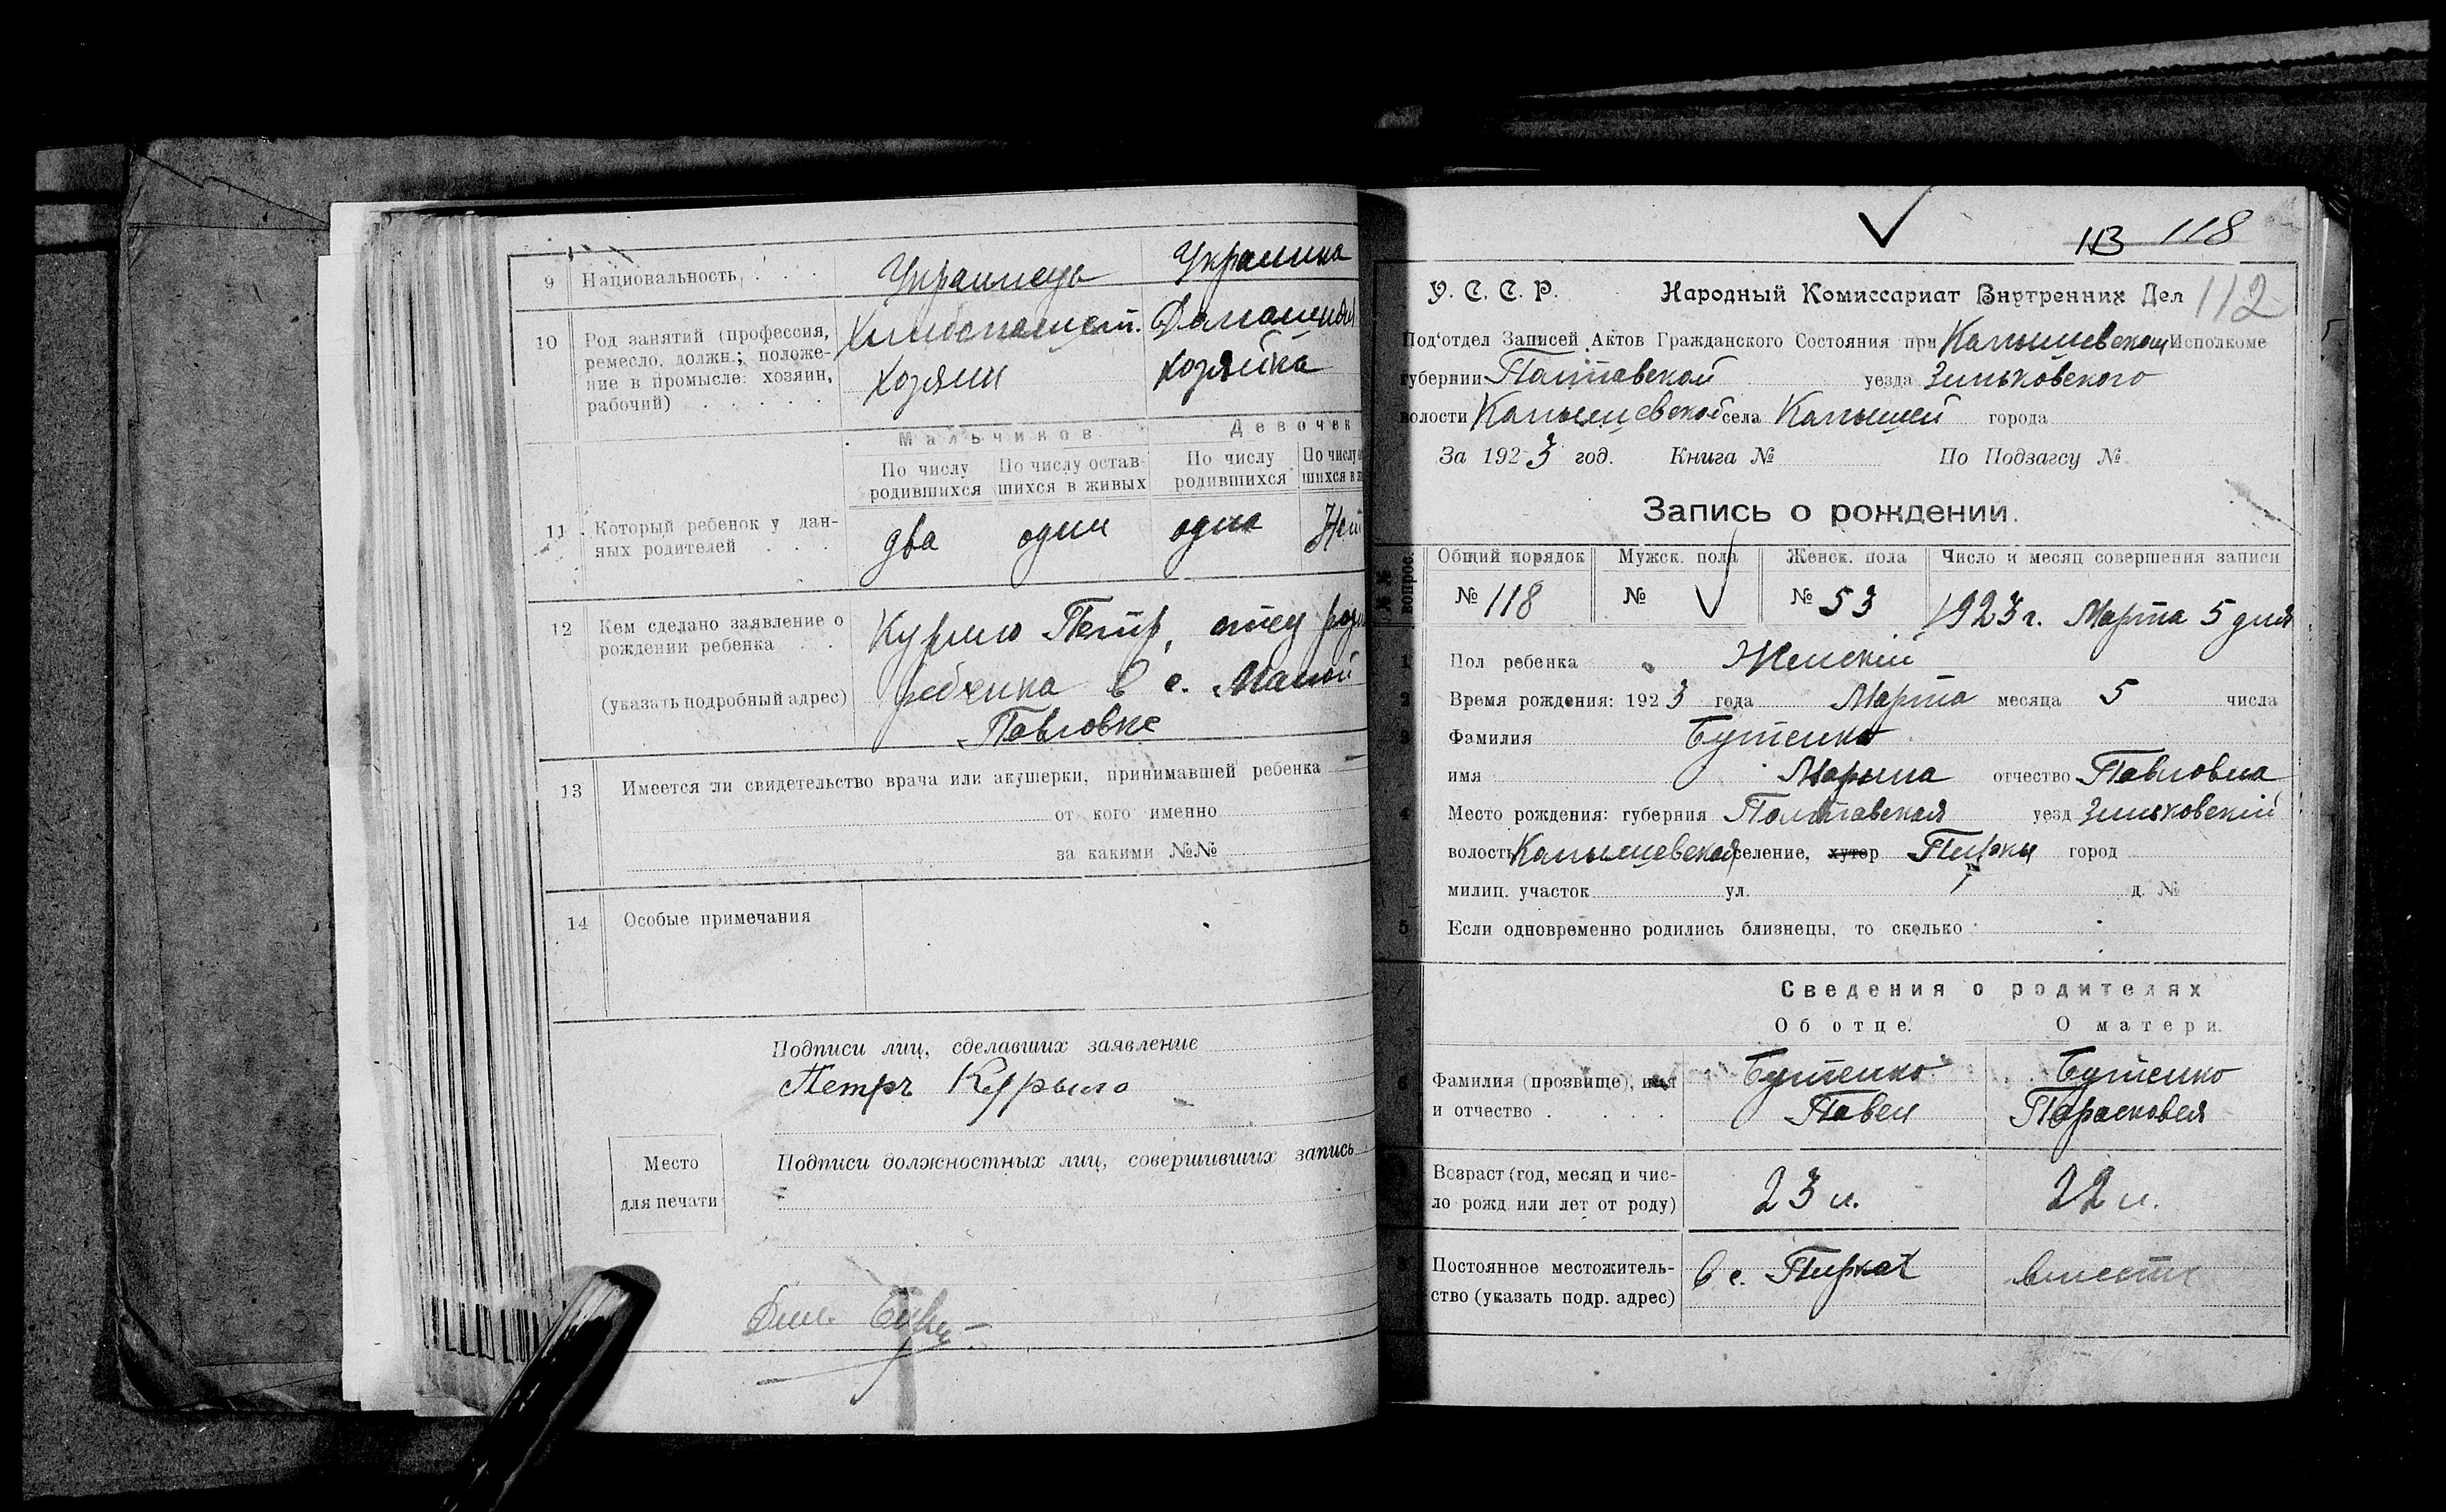 9 Национальность . . . Украинець Украинка
10 Род занятий (профессия, Хлебопашест. Домашняя
ремесло, должн.; положе-
ние в промысле: хозяин, хозяин хозяйка
рабочий) . . . . .
Мальчиков Девочек
По числу По числу остав- По числу По числу
родившихся шихся в живых родившихся шихся в ж
11 Который ребенок у дан- два один одна Нет
ных родителей . . .
12 Кем сделано заявление о Курило Петр, отец
рождении ребенка . . .
(указать подробный адрес) ребенка в с. Малой
Павловке
13 Имеется ли свидетельство врача или акушерки, принимавшей ребенка
от кого именно
за какими №№
14 Особые примечания
Подписи лиц, сделавших заявление
Петръ Курыло
Место
для печати
Подписи должностных лиц, совершивших запись
113 118
У. С. С. Р. Народный Комиссариат Внутренних Дел 112
Под'отдел Записей Актов Гражданского Состояния при Капышевском Исполкоме
губернии Полтавской уезда Зиньковского
волости Капышевской села Капышей города
За 1923 год. Книга № По Подзагсу №
Запись о рождении.
№№ вопрос. Общий порядок Мужск. пола Женск. пола Число и месяц совершения записи
№ 118 № № 53 1923 г. Марта 5 дня
1 Пол ребенка Женскій
2 Время рождения: 1923 года Марта месяца 5 числа
3 Фамилия Бутенко
имя Марына отчество Павловна
4 Место рождения: губерния Полтавская уезд Зиньковскій
волость Капышевская селение, хутор Пирки город
милиц. участок ул. д. №
5 Если одновременно родились близнецы, то сколько
Сведения о родителях
Об отце. О матери.
6 Фамилия (прозвище), имя Бутенко Бутенко
и отчество . . . . Павел Парасковея
Возраст (год, месяц и чис- 23 л. 22 л.
ло рожд. или лет от роду)
8 Постоянное местожитель- в с. Пирках вместе
ство (указать подр. адрес)